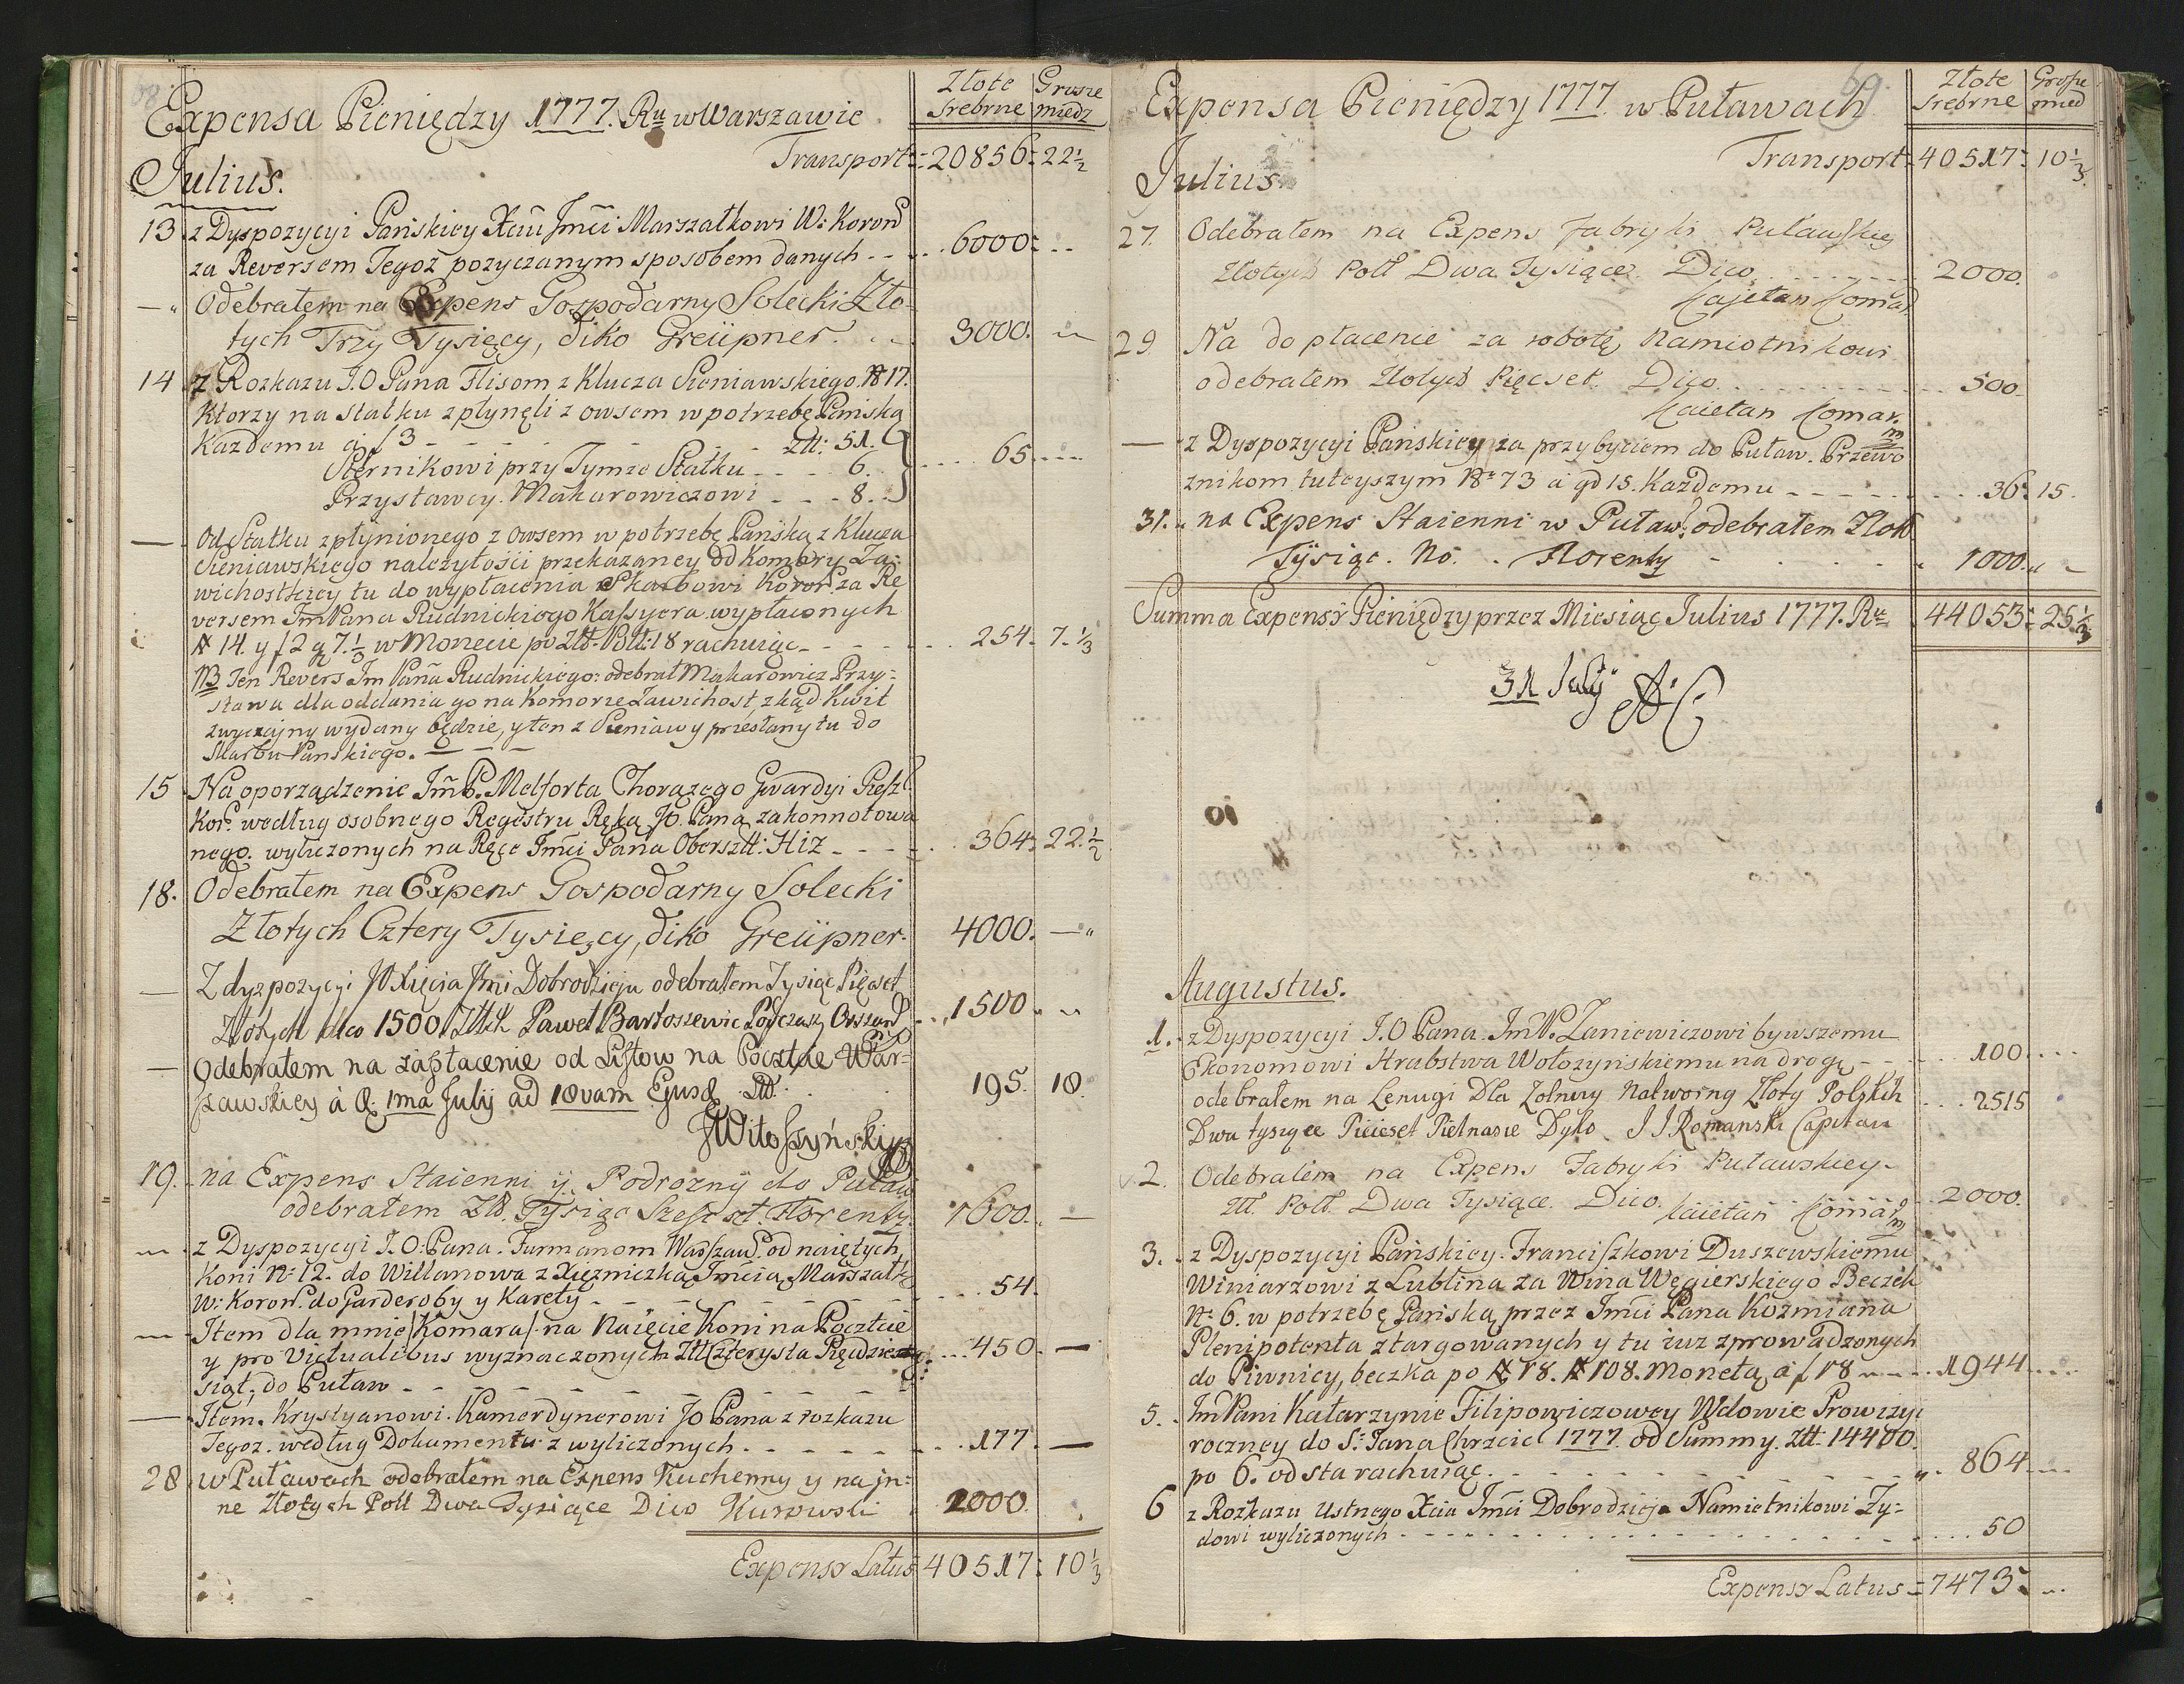 68
Expensa Pieniędzy 1777. Ru w Warszawie
Złote Srebrne
Grosze miedz
Transport = 20856: 22 1/2
Julius.
13 z Dyspozycyi Pańskiey Xciu Jmći Marszałkowi W: Koron
za Reversem Tegoż pożyczanym sposobem danych - - 6000: - -
—" Odebrałem na Expens Gospodarny Solecki Zło-
tych Trzy Tysięcy, diko Greüpner. . . 3000. —
14 z Rozkazu J.O Pana Flisom z Klucza Sieniawskiego N 17.
Ktorzy na Statku zpłynęli z owsem w potrzebę Pańską
Każdemu a f 3 - - - - - Złł: 51.
Sternikowi przy Tymże Statku - - - 6.
Przystawcy Makarowiczowi - - - 8. . . . 65 . . . .
— Od Statku zpłynionego z owsem w potrzebę Pańską z Klucza
Sieniawskiego należytości przekazaney od Komory Za-
wichostskiey tu do wypłacenia Skarbowi Koron: za Re
versem Jm Pana Rudnickiego Kassyera wypłaconych
# 14. y f 2 g 7. 1/3 w Monecie po Złł. Poll: 18 rachuiąc - - - - 254. 7. 1/3
NB Ten Revers Jm Pana Rudnickiego: odebrał Makarowicz Przy-
stawa dla oddania go na Komorze Zawichost, zkąd Kwit
zwyczajny wydany będzie, y ten z Sieniawy przesłany tu do
Skarbu Pańskiego. — — —
15 Na oporządzenie Jm P. Melforta Chorążego Gwardyi Piesz.
Kor: według osobnego Regestru Ręką JO. Pana zakonnotowa
nego. wyliczonych na Ręce Jmći Pana Oberszlt: Hiz - - - - 364. 22. 1/2
18. Odebrałem na Expens Gospodarny Solecki
Złotych Cztery Tysięcy, diko Greüpner. 4000. —"
— Z dyzpozycyi JO Xięcia Jmi Dobrodzieju odebrałem Tysiąc Pięcset
Złotych dico 1500 Złłch Paweł Bartoszewic Podczaszy Orszań . . 1500 " "
— Odebrałem na zapłacenie od Listow na Poczcie War-
szawskiey à d. 1ma July ad 18vam Ejusd. Złł. . . 195. 18.
JWitoszyński
19. na Expens Staienni ÿ Podrożnÿ do Puław
odebrałem Złł. Tysiąc Szesc set. Florenty. 1600. . —
— z Dyspozycyi J.O: Pana. Furmanom Warszaw: od naiętych
Koni N: 12. do Willanowa z Xiężniczką Jmćią Marszałk
W: Koron. do Garderoby y Karety - - - - - - 54.
— Item dla mnie /Komara/ na Naięcie Koni na Poczcie
y pro Victualibus wyznaczonych Złł Czterysta Pięćdzie-
siąt, do Puław - - - - - - - . . . 450. —
— Item. Krystyanowi. Kamerdynerowi Jo Pana z rozkazu
Tegoż. według Dokumentu z wyliczonych . - - - - - . . 177. —
28 w Puławach odebrałem na Expens Kuchenny y na jn-
ne Złotych Poll Dwa Tysiące Dico Kurowski 2000. .
Expensæ Latus 40517: 10 1/3
69
Expensa Pieniędzy 1777. w Puławach
Złote Srebrne
Grosze mied
Transport = 40517: 10 1/3.
Julius.
27. Odebrałem na Expens Fabryki Puławskiey
Złotych Poll Dwa Tysiące. Dico . . . . . . . 2000.
Cajetan Komar
29. Na do płacenie za robotę Namiotnikowi
odebrałem Złotych Pięcset. Dico . . . . . . . 500.
Caietan Komar. m
— z Dyspozycyi Pańskiey za przybyciem do Puław. Przewo
źnikom tuteyszym N: 73 a gd 15. Każdemu - - - - - . . . 36: 15.
31. " na Expens Staienni w Puław: odebrałem Złoł
Tÿsiąc. No. . Florenty - . . . . 1000. " -
Summa Expensy Pieniędzy przez Miesiąc Julius 1777. Ru 44053: 25 1/3
31 July AC
Augustus.
1. z Dyspozycyi J.O Pana. Jm P. Zaniewiczowi bywszemu
Ekonomowi Hrabstwa Wołożyńskiemu na drogę - - . . . 100 . . . .
odebrałem na Lenugi Dla Zołnirzy Natworng Złoty Polskich . . . 2515
Dwa tysiące Piecset Pietnasie Dyko. J J Romanski Capitan
2. Odebrałem na Expens Fabryki Puławskiey.
Złł. Poll. Dwa Tysiące. Dico. Caietan Komar m . . 2000.
3. . z Dyspozycyi Pańskiey. Franciszkowi Duszewskiemu
Winiarżowi z Lublina za Wina Węgierskiego Beczek
N: 6. w potrzebę Pańską przez Jmći Pana Kozmiana
Plenipotenta ztargowanych y tu iuz zprowadzonych
do Piwnicy, beczka po # 18. # 108. Monetą a f 18 - - . . 1944 . . . .
5. . Jm Pani Katarzynie Filipowiczowey Wdowie Prowizyi
roczney do S: Jana Chrzcic 1777. od Summy. Złł. 14400.
po 6. od sta rachuiąc . . - - - - - - - - " . 864 . . . .
6 z Rozkazu Ustnego Xcia Jmći Dobrodzieja Namietnikowi Ży-
dowi wyliczonych . - - - - . . . . . . . . . 50
Expensæ Latus = 7473: . . .